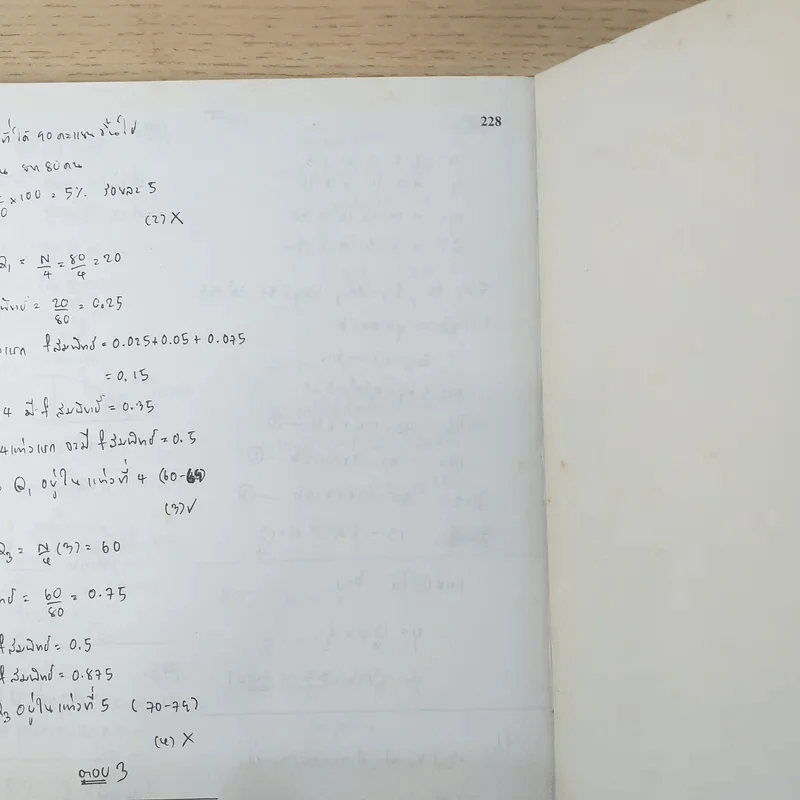 228
ที่ได้ 90 คะแนน ขึ้นไป
น จาก 80 คน
0 × 100 = 5% ร้อยละ 5
(2) X
Q₁ = N/4 = 80/4 = 20
สัมพัทธ์ = 20/80 = 0.25
แรก f สัมพัทธ์ = 0.025+0.05+0.075
= 0.15
4 มี f สัมพัทธ์ = 0.35
4 แท่งแรก จะมี f สัมพัทธ์ = 0.5
Q₁ อยู่ใน แท่งที่ 4 (60-69)
(3) ✓
Q₃ = N/4 (3) = 60
ทธ์ = 60/80 = 0.75
f สัมพัทธ์ = 0.5
f สัมพัทธ์ = 0.875
Q₃ อยู่ใน แท่งที่ 5 (70-79)
(4) X
ตอบ 3